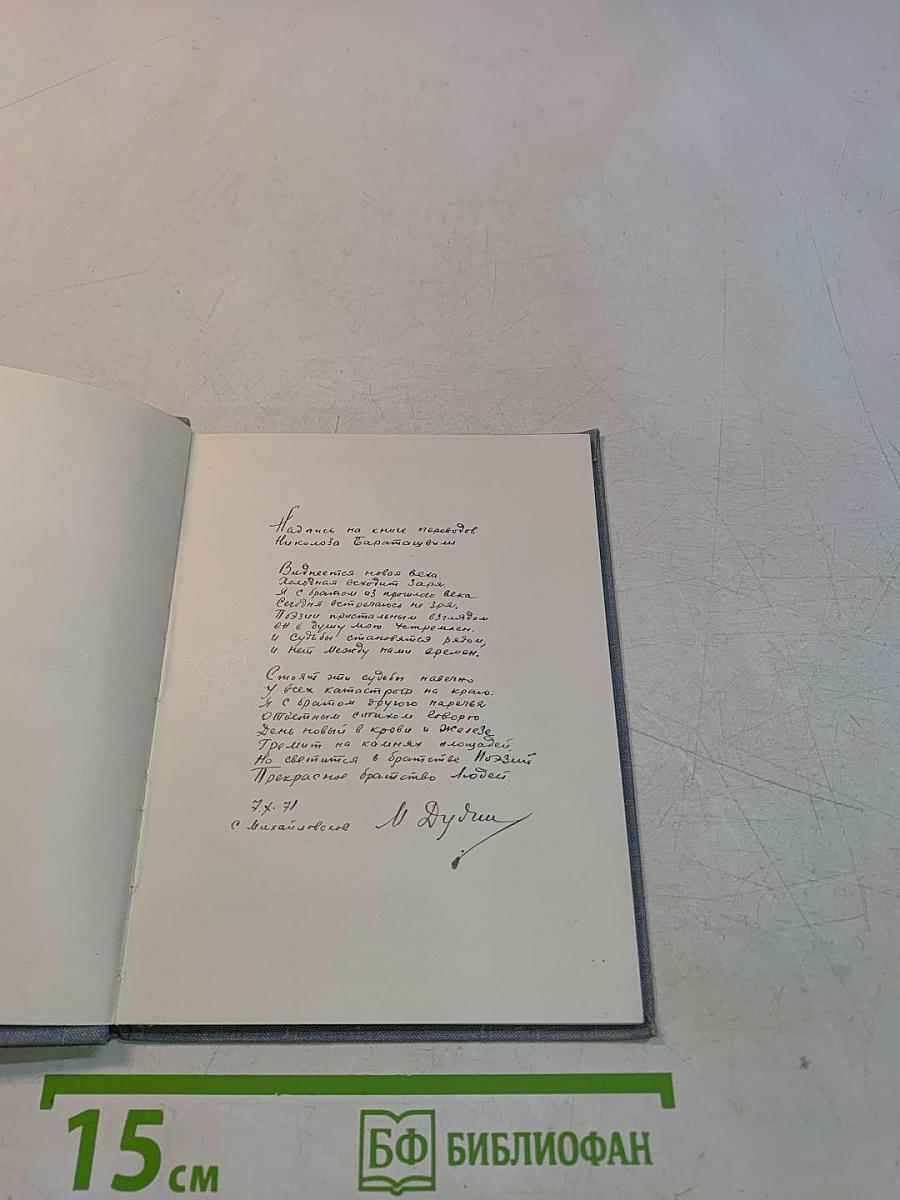 Надпись на книге переводов
Николоза Бараташвили
Виднеется новая веха,
Холодная восходит заря.
Я с братом из прошлого века
Сегодня встречаюсь не зря.
Поэзии пристальным взглядом
он в душу мою устремлен.
и судьбы становятся рядом,
и нет между нами времен.
Стоят эти судьбы навечно
У всех катастроф на краю.
Я с братом другого наречья
Ответным стихом говорю
День новый в крови и железе
Гремит на камнях площадей,
Но светится в братстве Поэзий
Прекрасное братство Людей.
7.X.71
с Михайловское
М Дудин
15 см
БФ БИБЛИОФАН